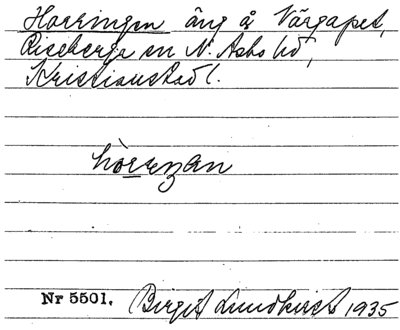 Horringen äng å Värgapet,
Riseberga sn N. Asbo hd,
Kristianstad l.
hòrreŋan
Nr 5501. Birgit Lundkvist 1935